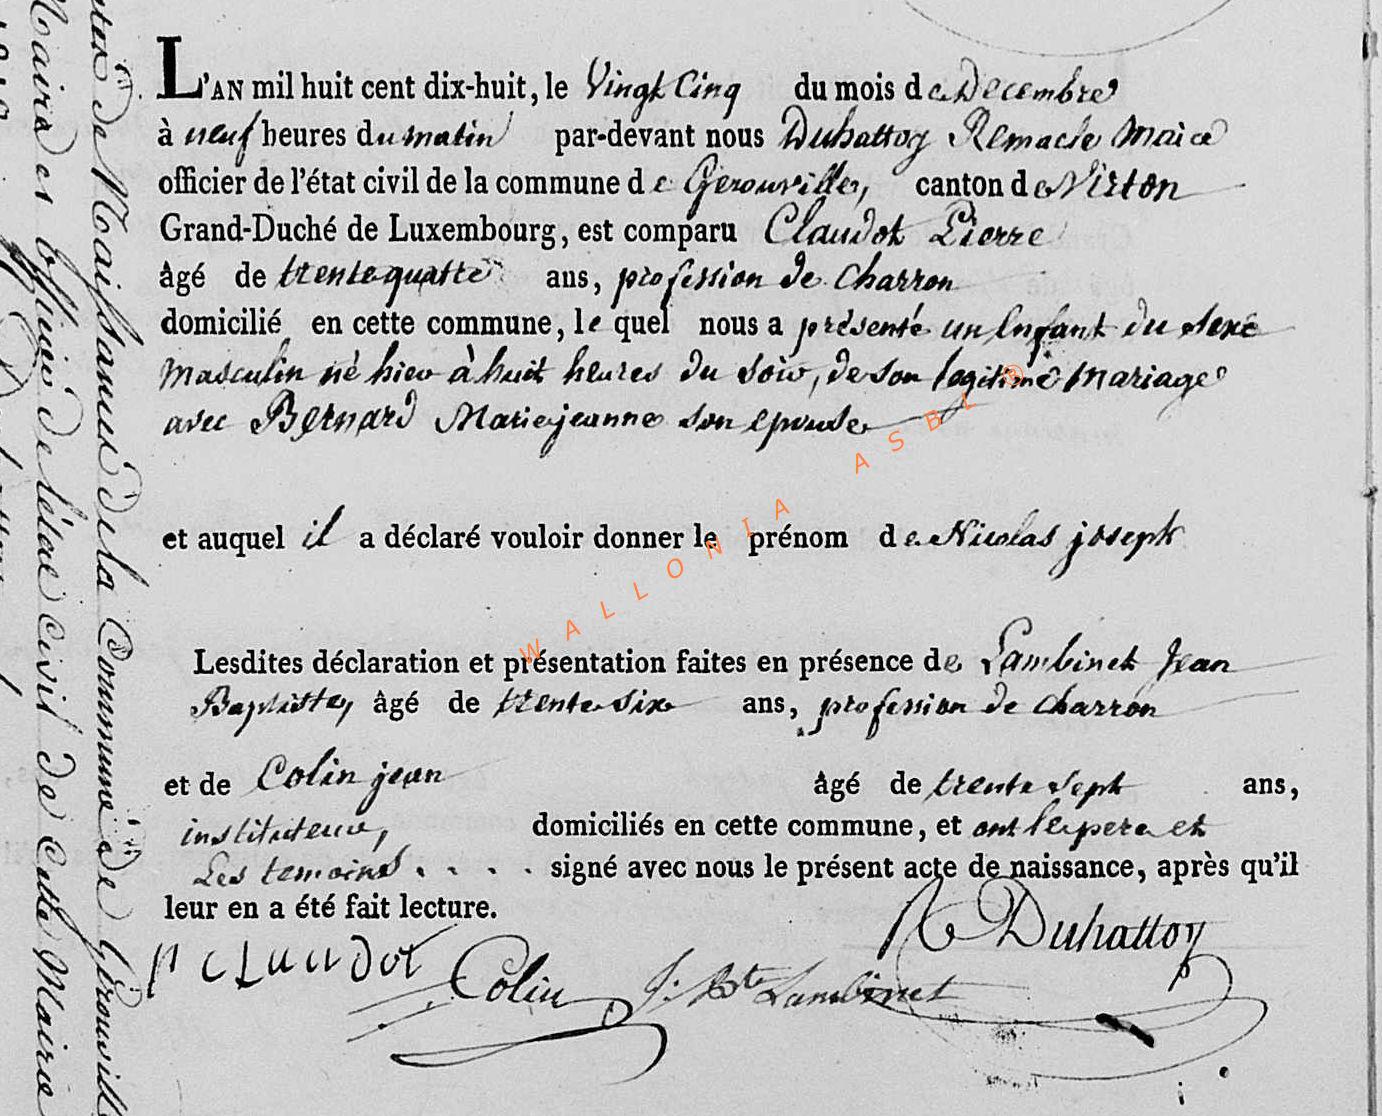 L'AN mil huit cent dix-huit, le Vingt Cinq du mois de Decembre
à neuf heures du matin par-devant nous Duhattoy Remacle Maire
officier de l'état civil de la commune de Gerouville, canton de Virton
Grand-Duché de Luxembourg, est comparu Claudot Pierre
âgé de trente quatre ans, profession de Charron
domicilié en cette commune, le quel nous a présenté un Enfant du sexe
masculin né hier à huit heures du soir, de son legitime mariage
avec Bernard Marie jeanne son epouse
et auquel il a déclaré vouloir donner le prénom de Nicolas joseph
Lesdites déclaration et présentation faites en présence de Lambinet Jean
Baptiste, âgé de trente six ans, profession de charron
et de Colin jean âgé de trente sept ans,
instituteur, domiciliés en cette commune, et ont le pere et
Les temoins . . . . signé avec nous le présent acte de naissance, après qu'il
leur en a été fait lecture.
R Duhattoy
P CLAUDOt Colin J. Bte Lambinet
de Naissance de la Commune de Gérouville
Maire et officier de l'état civil de cette Mairie
WALLONIA ASBL ®